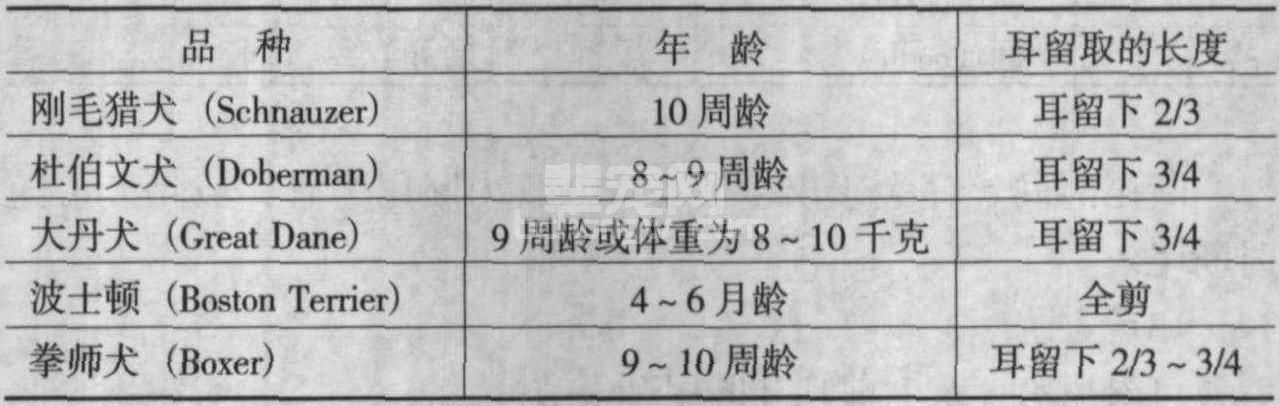 品 种 年 龄 耳留取的长度
刚毛猎犬 (Schnauzer) 10 周龄 耳留下 2/3
杜伯文犬 (Doberman) 8~9 周龄 耳留下 3/4
大丹犬 (Great Dane) 9 周龄或体重为 8~10 千克 耳留下 3/4
波士顿 (Boston Terrier) 4~6 月龄 全剪
拳师犬 (Boxer) 9~10 周龄 耳留下 2/3~3/4